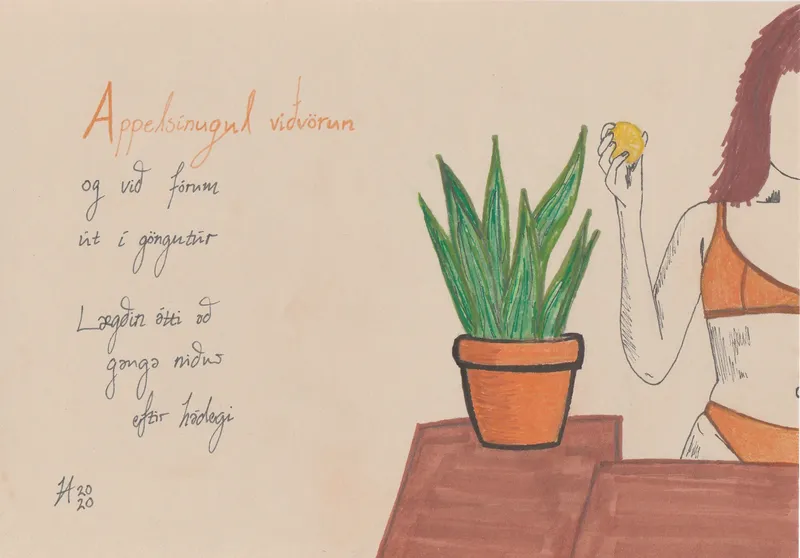 Appelsínugul viðvörun
og við fórum
út í göngutúr
Lægðin átti að
ganga niður
eftir hádegi
JA 20
20